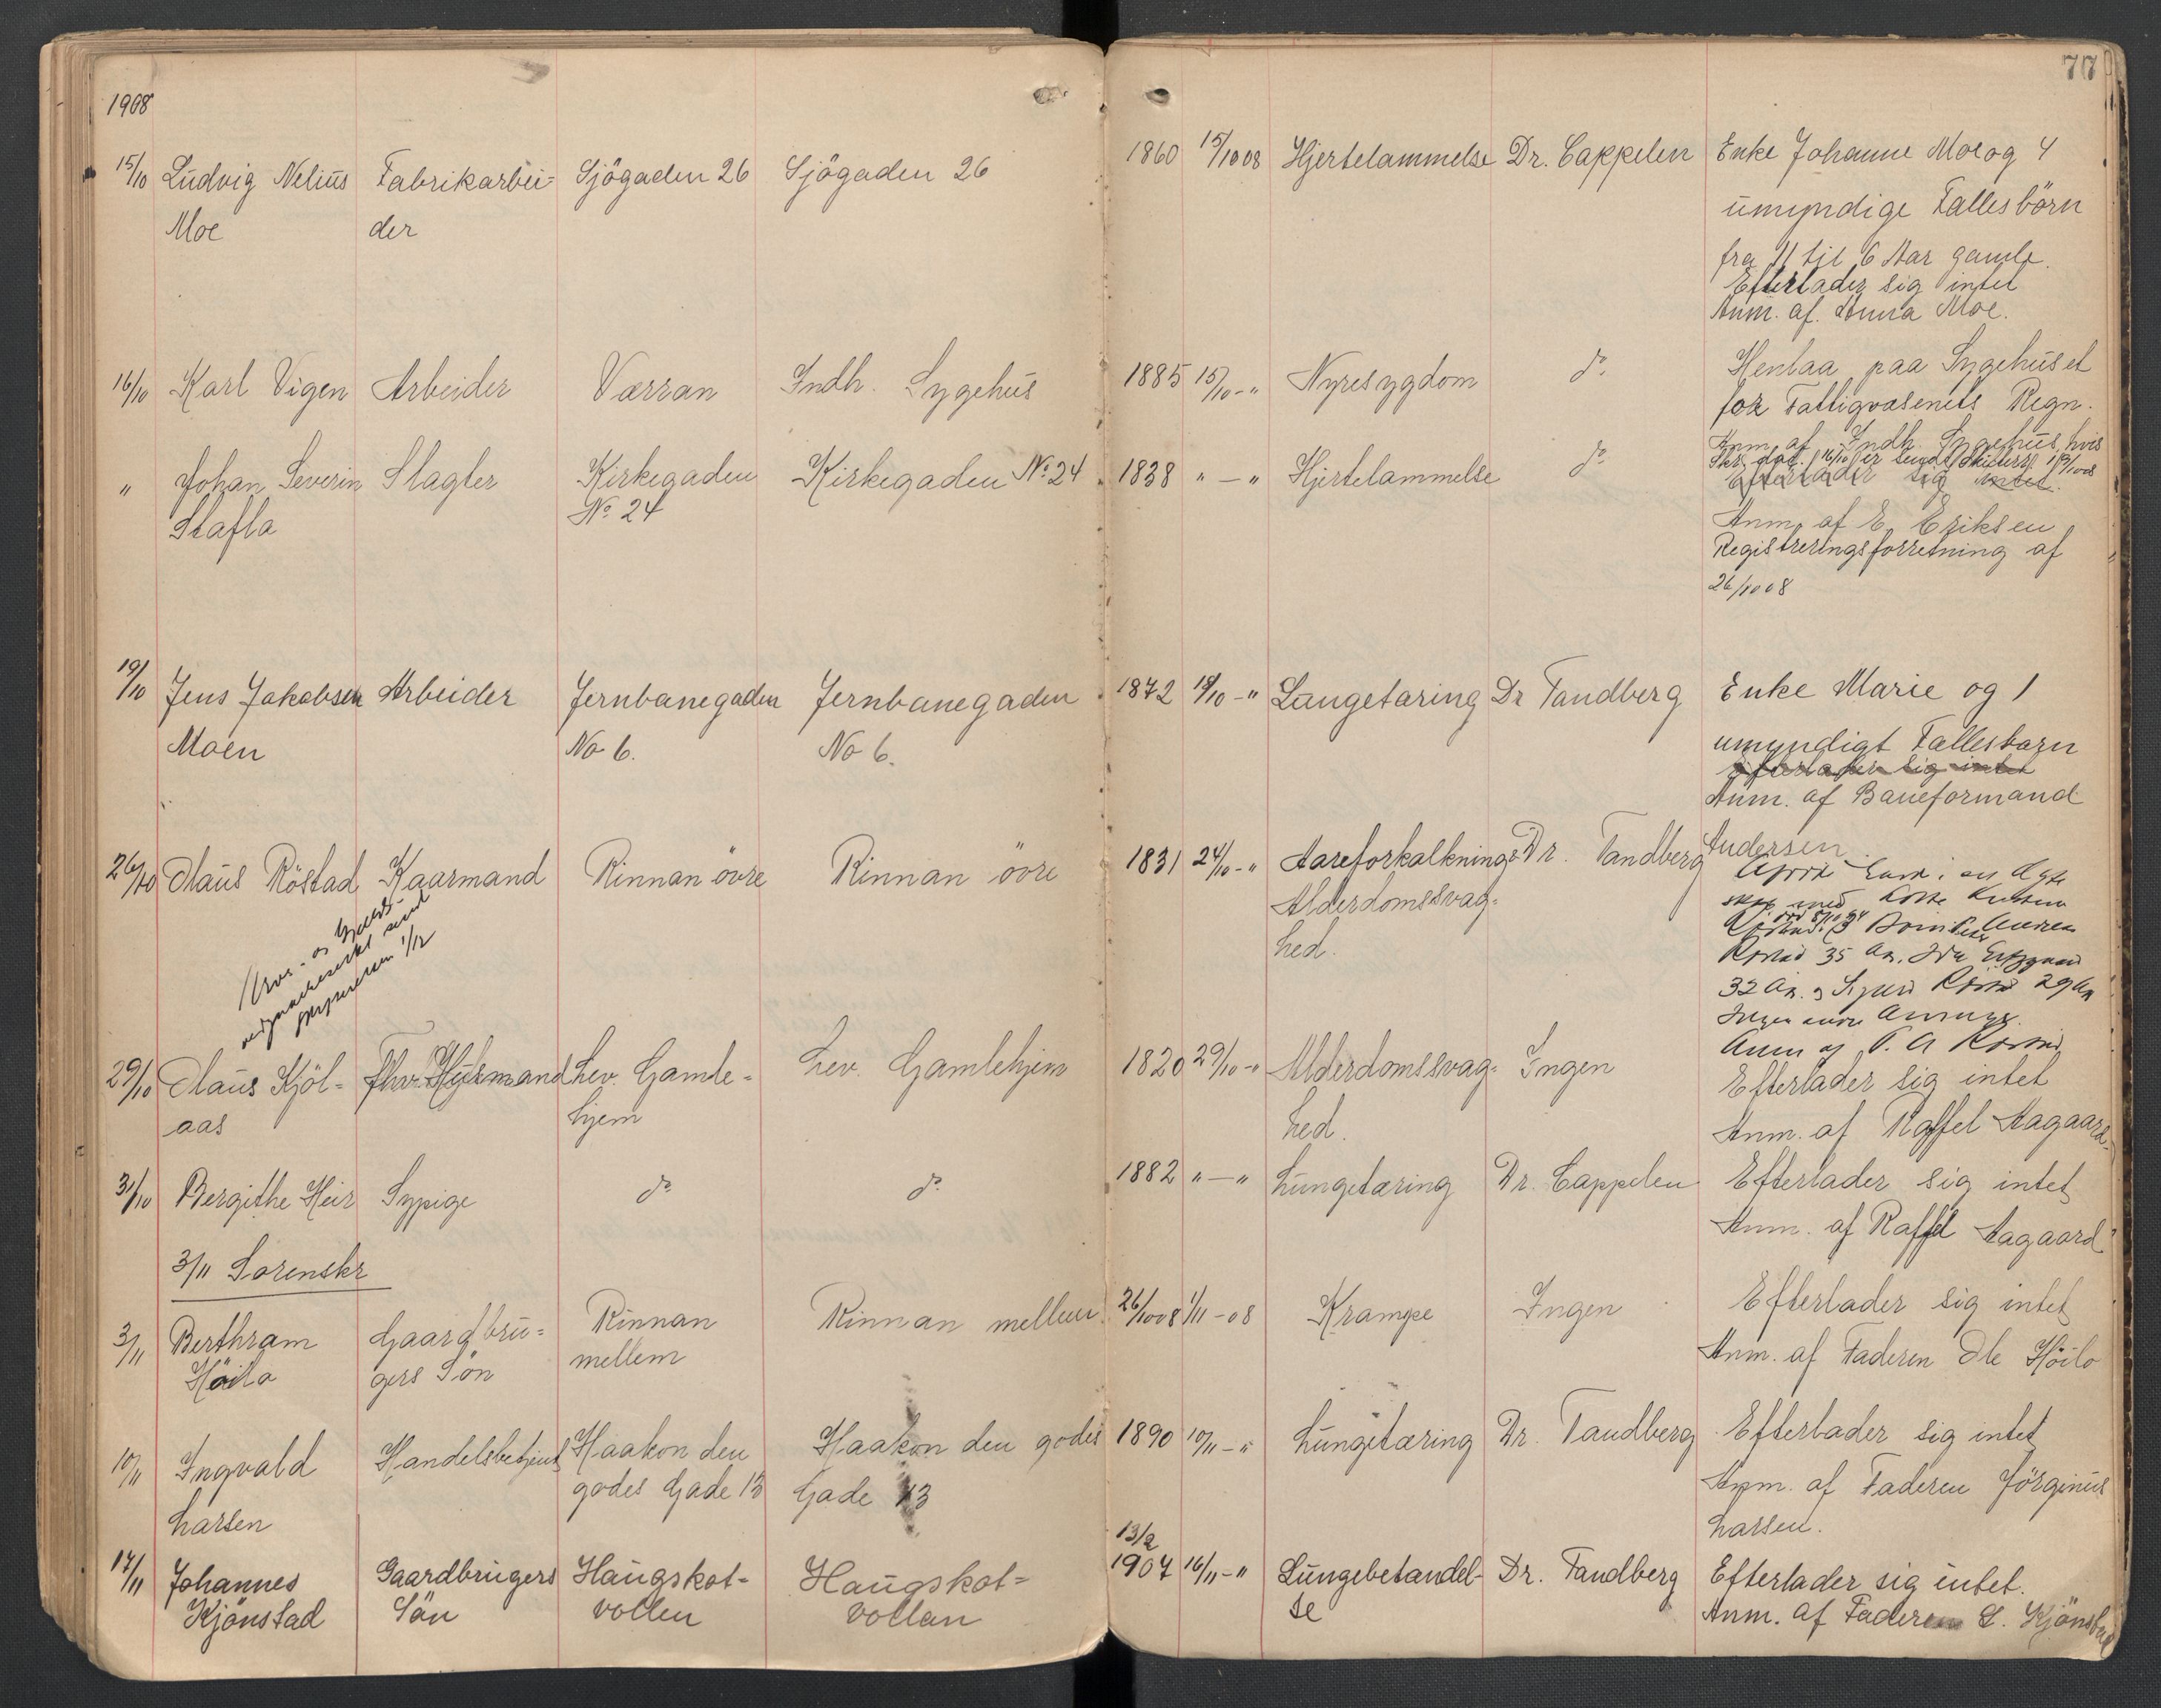 1908
77
15/10 Ludvig Nelius Fabrikarbei= Sjögaden 26 Sjögaden 26 1860 15/10 08 Hjertelammelse Dr. Cappelen Enke Johanne Moe og 4
Moe der umyndige Fællesbörn
fra 11 til 6 Aar gamle.
Efterlader sig intet
Anm. af. Anna Moe.
16/10 Karl Vigen Arbeider Værran Indh. Sygehus 1885 15/10 -" Nyresygdom do. Henlaa paa Sygehuset
for Fattigvæsenets Regn.
Anm. af Indh. Sygehus, hvis
Skr. dat. 16/10 er sendt Skifterr 19/10 08
" Johan Severin Slagter Kirkegaden Kirkegaden No. 24 1838 " - " Hjertelammelse do. Efterlader sig intet.
Stafla No. 24 Anm. af E. Eriksen
Registreringsforretning af
26/10 08
19/10 Jens Jakobsen Arbeider Jernbanegaden Jernbanegaden 1872 18/10 -" Lungetæring Dr Tandberg Enke Marie og 1
Moen No 6. No 6. umyndigt Fællesbarn
efterlader sig intet
Anm. af Baneformand
Andersen.
26/10 Olaus Röstad Kaarmand Rinnan övre Rinnan övre 1831 24/10 -" Aareforkalkning & Dr. Tandberg
Alderdomssvag=
hed.
35 Aar,
32 Aar. og 29 Aar
29/10 Olaus Kjöl= fhv. Husmand Lev. Gamle= Lev. Gamlehjem 1820 29/10 -" Alderdomssvag= Ingen Efterlader sig intet
aas hjem hed. Anm. af Raffel Aagaard
31/10 Bergithe Heir Sypige do. do. 1882 " - " Lungetæring Dr. Cappelen Efterlader sig intet
Anm. af Raffel Aagaard
3/11 Sorenskr
3/11 Berthram Gaardbru= Rinnan Rinnan mellem 26/10 08 1/11 - 08 Krampe Ingen Efterlader sig intet
Höilo gers Sön mellem Anm. af Faderen Ole Höilo
10/11 Ingvald Handelsbetjent Haakon den Haakon den godes 1890 10/11 -" Lungetæring Dr. Tandberg Efterlader sig intet
Larsen godes Gade 13 Gade 13 Anm. af Faderen Jörginus
Larsen.
13/2
17/11 Johannes Gaardbrugers Haugskot= Haugskot= 1907 16/11 -" Lungebetændel- Dr. Tandberg Efterlader sig intet.
Kjönstad Sön vollen vollan se Anm. af Faderen L. Kjönstad